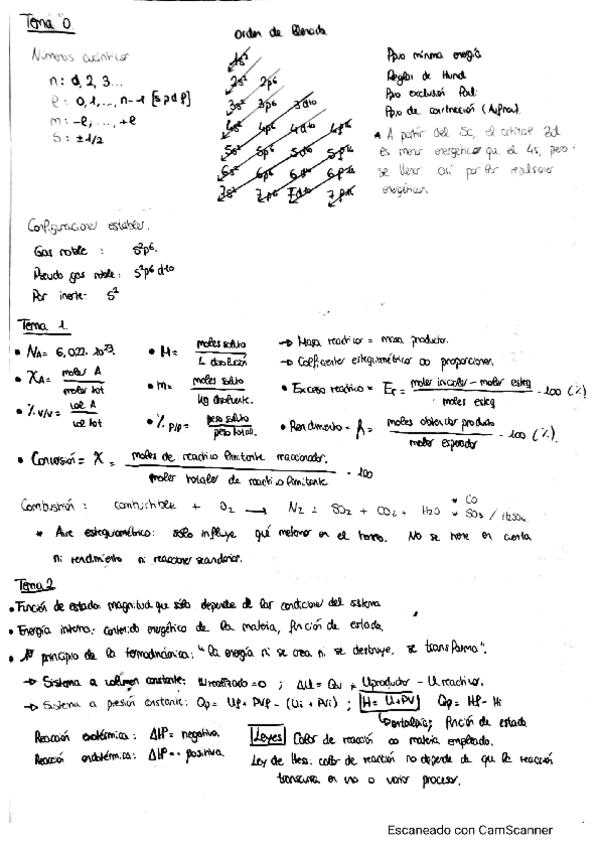 Tema 0.
Orden de llenado
Números cuánticos
n: 1, 2, 3...
l: 0, 1, ..., n-1 [s p d f]
m: -l, ..., +l
s: ±1/2
1s²
2s² 2p⁶
3s² 3p⁶ 3d¹⁰
4s² 4p⁶ 4d¹⁰ 4f¹⁴
5s² 5p⁶ 5d¹⁰ 5f¹⁴
6s² 6p⁶ 6d¹⁰ 6f¹⁴
7s² 7p⁶ 7d¹⁰ 7f¹⁴
Ppio mínima energía
Reglas de Hund
Ppio exclusión Pauli
Ppio de construcción (Aufbau).
* A partir del Sc, el orbital 3d
es menos energético que el 4s, pero
se llenan así por
energéticas.
Configuraciones estables.
Gas noble : s²p⁶.
Pseudo gas noble: s²p⁶d¹⁰
Par inerte: s²
Tema 1.
• NA = 6,022·10²³.
• XA = moles A / moles tot
• % v/v = vol A / vol tot
• M = moles soluto / L disolución
• m = moles soluto / kg disolvente.
• % p/p = peso soluto / peso total.
→ Masa reactivos = masa productos.
→ Coeficientes estequiométricos ∞ proporciones.
• Exceso reactivo = Er = moles inciales - moles esteq / moles esteq · 100 (%)
• Rendimiento = moles obtenidos producto / moles esperados · 100 (%).
• Conversión = X = moles de reactivo limitante reaccionados. / moles totales de reactivo limitante · 100
Combustión : combustible + O₂ → N₂ + SO₂ + CO₂ + H₂O * CO * SO₃ / H₂SO₄
* Aire estequiométrico: sólo influye qué metemos en el horno. No se tiene en cuenta
ni rendimiento ni reacciones secundarias.
Tema 2
• Función de estado: magnitud que sólo depende de las condiciones del sistema
• Energía interna: contenido energético de la materia, función de estado.
• 1er principio de la termodinámica: "la energía ni se crea ni se destruye, se transforma".
→ Sistema a volumen constante: W realizado = 0 ; ΔU = Qv = U productos - U reactivos.
→ Sistema a presión constante: Qp = Uf + PVf - (Ui + PVi) ; H = U + PV Qp = Hf - Hi
↳ entalpía; función de estado
Reacción exotérmica: ΔHº = negativa.
Reacción endotérmica: ΔHº = positiva.
Leyes Calor de reacción ∞ materia empleada.
Ley de Hess: calor de reacción no depende de que la reacción
transcurra en uno o varios procesos.
Escaneado con CamScanner